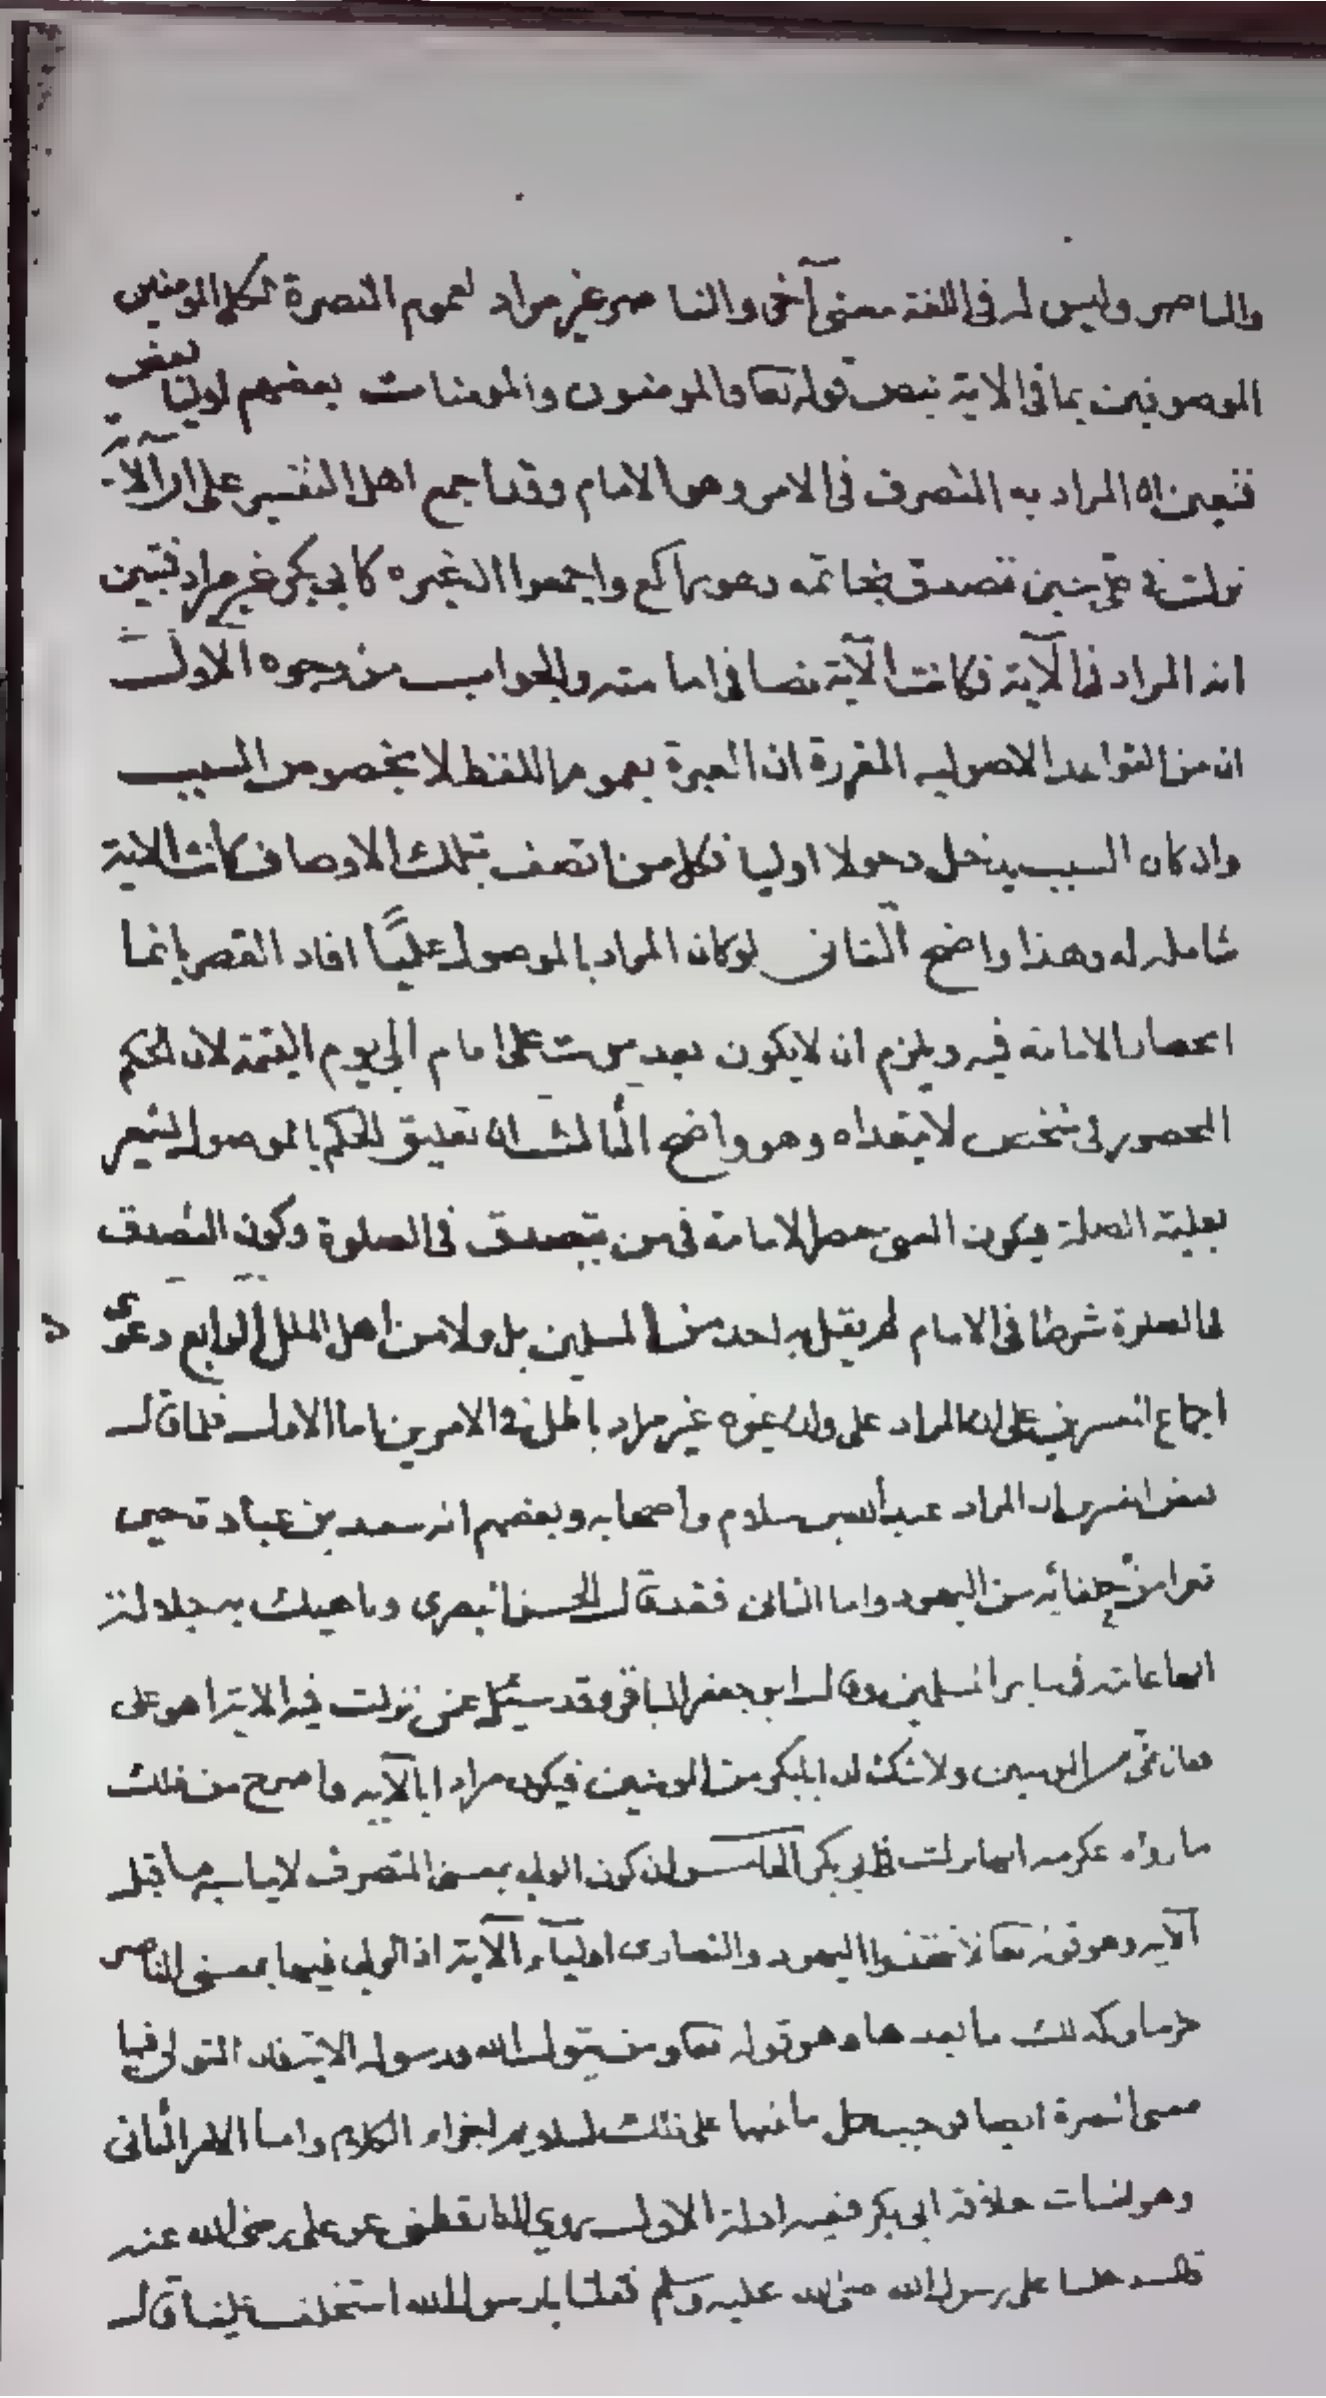 والناصر وليس له فى اللغة معنى آخر والناصر غير مراد لعموم النصرة لكل المومنين
الموصوفين بما فى الاية بنص قوله تعا والمومنون والمومنات بعضهم اوليا بعض
فتعين ان المراد به المتصرف فى الامر وهو الامام وقد اجمع اهل التفسير على ان الآية
نزلت فى على حين تصدق بخاتمه وهو راكع واجمعوا ان غيره كابى بكر غير مراد فتبين
انه المراد فى الآية فكانت الآية نصا فى امامته والجواب من وجوه الاول
ان من القواعد الاصوليه المقررة ان العبرة بعموم اللفظ لا بخصوص السبب
وان كان السبب يدخل دخولا اوليا فكل من اتصف بتلك الاوصاف كانت الاية
شامله له وهذا واضح الثانى لو كان المراد بالموصول عليًا افاد القصر بانما
انحصار الامامة فيه ويلزم ان لا يكون بعد موت على امام الى يوم القيمة لان الحكم
المحصور فى شخص لا يتعداه وهو واضح الثالث ان تعليق الحكم بالموصول يشعر
بعلية الصلة فيكون المعنى حصر الامامة فى من يتصدق فى الصلوة وكون التصدق
فى الصلوة شرطا فى الامام لم يقل به احد من المسلمين بل ولا من اهل الملل الرابع دعوى
اجماع المفسرين على ان المراد على وان غيره غير مراد باطل فى الامرين اما الاول فلما قال
بعض المفسرين ان المراد عبد الله بن سلام واصحابه وبعضهم انه سعد بن عباد حين
تبرا من حلفائه من اليهود واما الثانى فقد قال الحسن البصرى وناهيك به جلالة
انها عامة فى سائر المسلمين وقال ابو جعفر الباقر وقد سئل عمن نزلت فيه الاية اهو على
فقال على من المومنين ولا شك ان ابا بكر من المومنين فيكون مرادا بالآية واصرح من ذلك
ما رواه عكرمه انها نزلت فى ابى بكر الخامس ان كون الولى بمعنى المتصرف لا يناسبه ما قبل
الآية وهو قوله تعا لا تتخذوا اليهود والنصارى اوليآء الآية اذ الولى فيها بمعنى الناصر
جزما وكذلك ما بعدها وهو قوله تعا ومن يتول الله ورسوله الاية فان التولى فيها
بمعنى النصرة ايضا فوجب حمل ما بينهما على ذلك ليتلايم اجزاء الكلام واما الامر الثانى
وهو اثبات خلافة ابى بكر ففيه ادلة الاول روى الدارقطنى عن على رضى الله عنه
قال دخلنا على رسول الله صلى الله عليه وسلم فقلنا يا رسول الله استخلف علينا قال